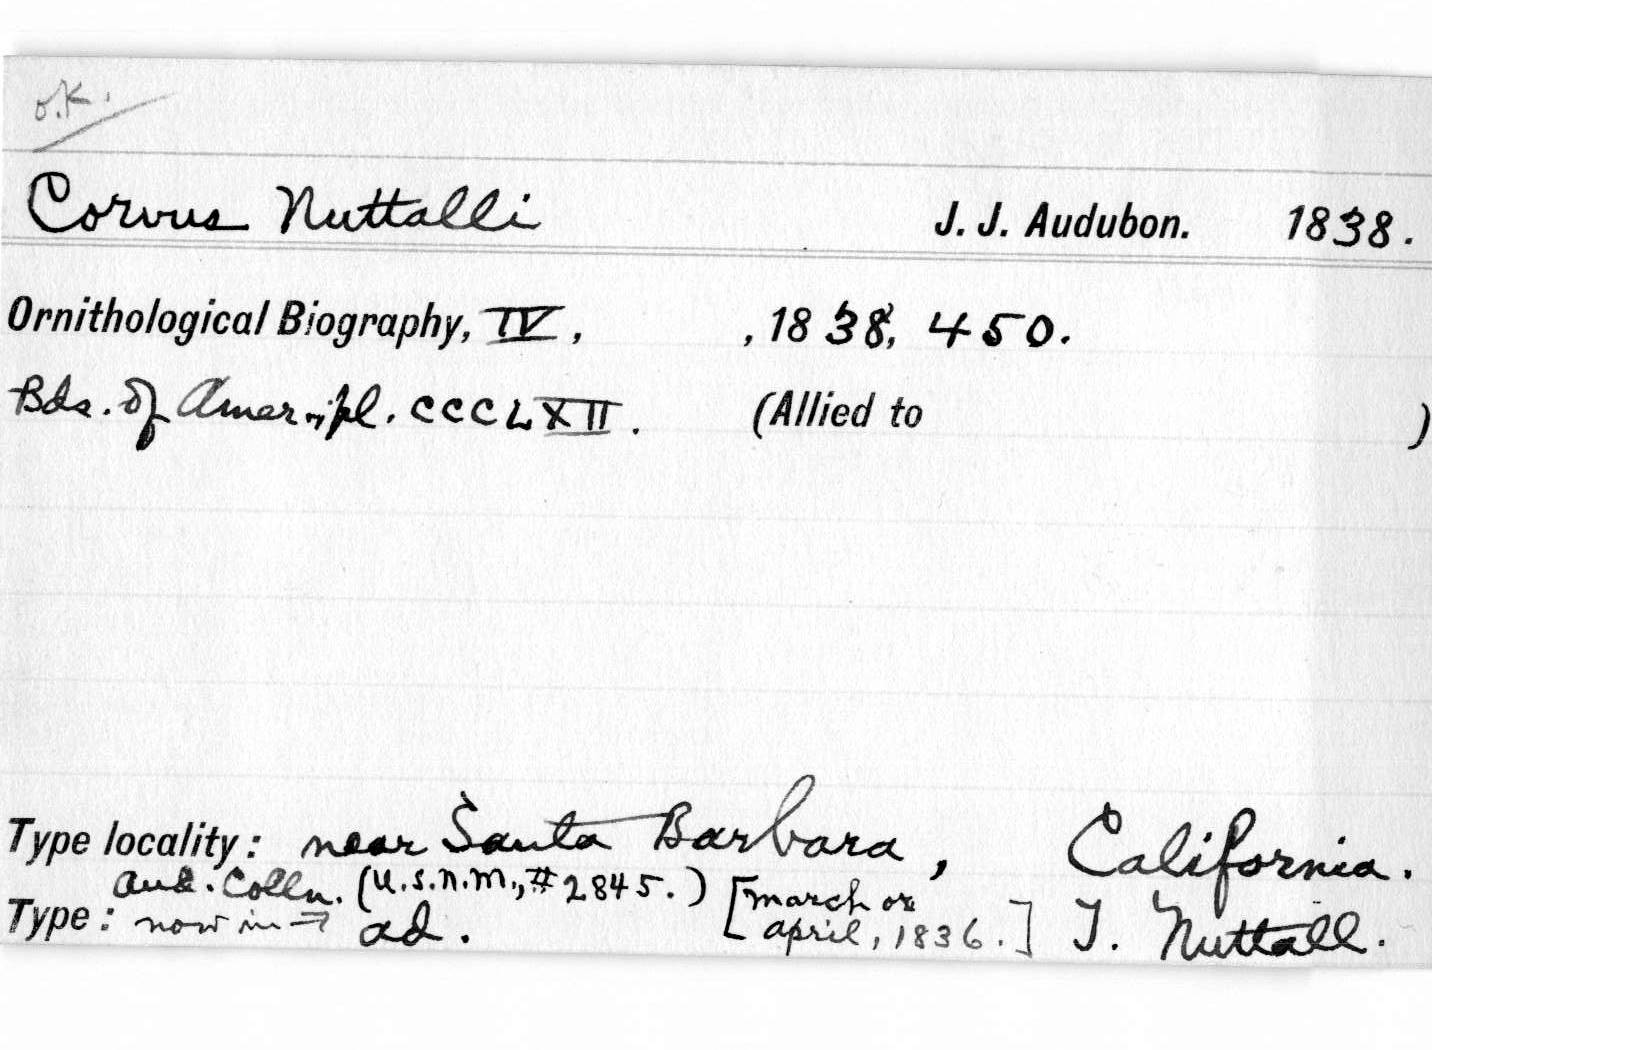 o.K.
Corvus Nuttalli J. J. Audubon. 1838.
Ornithological Biography, IV, , 1838, 450.
Bds. of Amer., pl. CCCLXII. (Allied to )
Type locality: near Santa Barbara, California.
Aud. Colln. (U.S.N.M., #2845.) [March or
Type: now in → ad. April, 1836.] T. Nuttall.